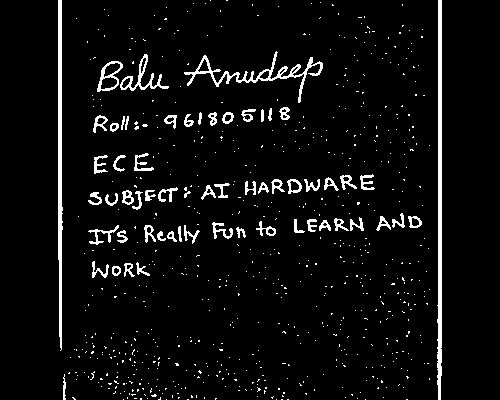 Balu Anudeep
Roll:- 961805118
ECE
SUBJECT: AI HARDWARE
IT'S Really Fun to LEARN AND
WORK